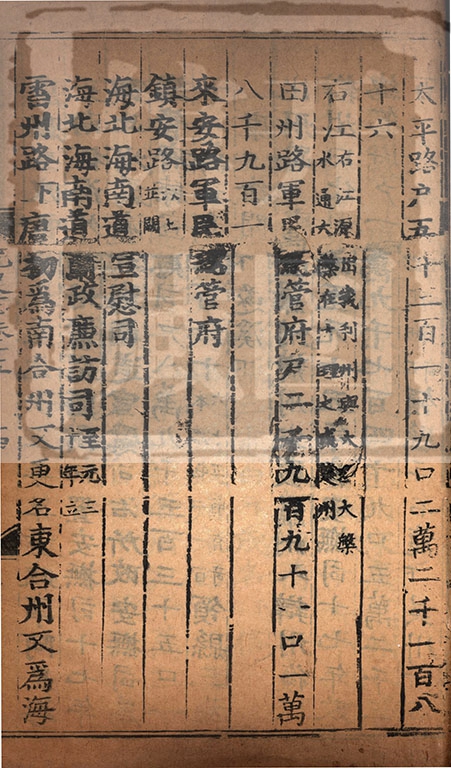 太平路户五十三百一十九口二萬二千一百八
十六
右江右江源出峩利州與大大槃水通大槃在之威楚州
田州路軍民總管府户二千九百九十一口一萬
八千九百一
來安路軍民總管府
鎮安路以上並闕
海北海南道宣慰司
海北海南道肅政廉訪司至元三十年立
雷州路下唐初爲南合州又更名東合州又爲海